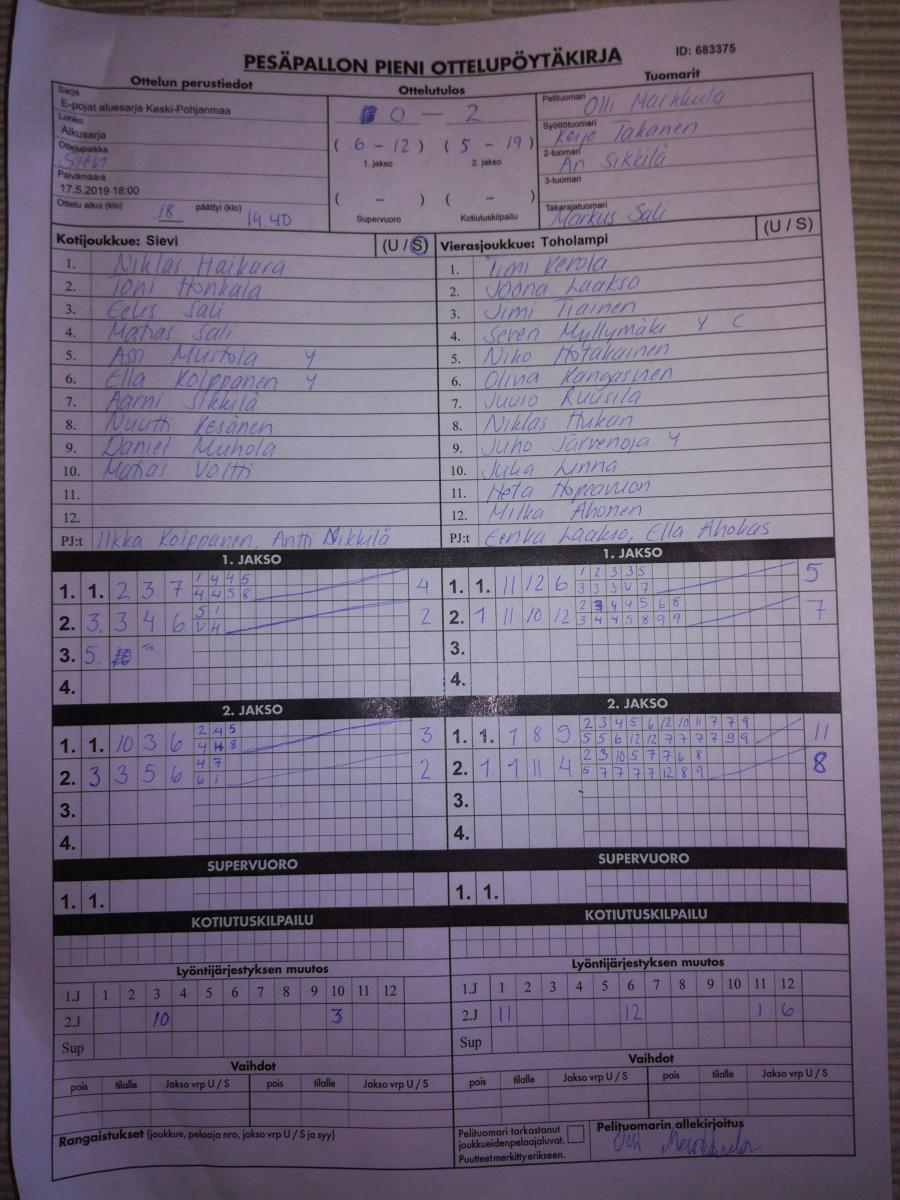 PESÄPALLON PIENI OTTELUPÖYTÄKIRJA
ID: 683375
Ottelun perustiedot
Sarja
E-pojat aluesarja Keski-Pohjanmaa
Lohko
Alkusarja
Ottelupaikka
Sievi
Päivämäärä
17.5.2019 18:00
Ottelu alkoi (klo) 18 päättyi (klo) 19.40
Ottelutulos
0 – 2
( 6 – 12 ) ( 5 – 19 )
1. jakso 2. jakso
( – ) ( – )
Supervuoro Kotiutuskilpailu
Tuomarit
Pelituomari Olli Markkula
Syöttötuomari
Keijo Takanen
2-tuomari
Ari Sikkilä
3-tuomari
Takarajatuomari
Markus Sali
Kotijoukkue: Sievi (U / S)
1. Niklas Haikara
2. Toni Honkala
3. Eelis Sali
4. Matias Sali
5. Mustola Y
6. Ella Kolppanen Y
7. Aarni Sikkilä
8. Nuutti Kesänen
9. Daniel Muhola
10. Matias Voltti
11.
12.
PJ:t Ilkka Kolppanen, Antti Nikkilä
Vierasjoukkue: Toholampi (U / S)
1. Timi Kerola
2. Joona Laakso
3. Jimi Tiainen
4. Seven Myllymäki Y C
5. Niko Hotakainen
6. Olivia Kangasnen
7. Juuso Ruusila
8. Niklas Hukan
9. Juho Järvenoja Y
10. Julia Linna
11. Heta
12. Milka Ahonen
PJ:t Laakso, Ella Ahokas
1. JAKSO
1. 1. 2 3 7 1 4 4 5 4
4 4 5 8
2. 3. 3 4 6 5 1 2
V H
3. 5.
4.
1. JAKSO
1. 1. 11 12 6 1 2 3 3 5 5
3 3 3 V 7
2. 1 11 10 12 2 3 4 4 5 6 8 7
3 4 4 5 8 9 9
3.
4.
2. JAKSO
1. 1. 10 3 6 2 4 5 3
4 8
2. 3 3 5 6 4 7 2
6 1
3.
4.
2. JAKSO
1. 1. 1 8 9 2 3 4 5 6 12 10 11 7 7 9 11
5 5 6 12 12 7 7 7 7 9 9
2. 1. 1 11 4 2 3 10 5 7 7 6 8 8
5 7 7 7 7 12 8 9
3.
4.
SUPERVUORO
1. 1.
SUPERVUORO
1. 1.
KOTIUTUSKILPAILU
KOTIUTUSKILPAILU
Lyöntijärjestyksen muutos
1.J 1 2 3 4 5 6 7 8 9 10 11 12
2.J 10 3
Sup
Lyöntijärjestyksen muutos
1.J 1 2 3 4 5 6 7 8 9 10 11 12
2.J 11 12 1 6
Sup
Vaihdot
pois tilalle Jakso vrp U / S pois tilalle Jakso vrp U / S
Vaihdot
pois tilalle Jakso vrp U / S pois tilalle Jakso vrp U / S
Rangaistukset (joukkue, pelaaja nro, jakso vrp U / S ja syy)
Pelituomari tarkastanut
joukkueidenpelaajaluvat.
Puutteetmerkitty erikseen.
Pelituomarin allekirjoitus